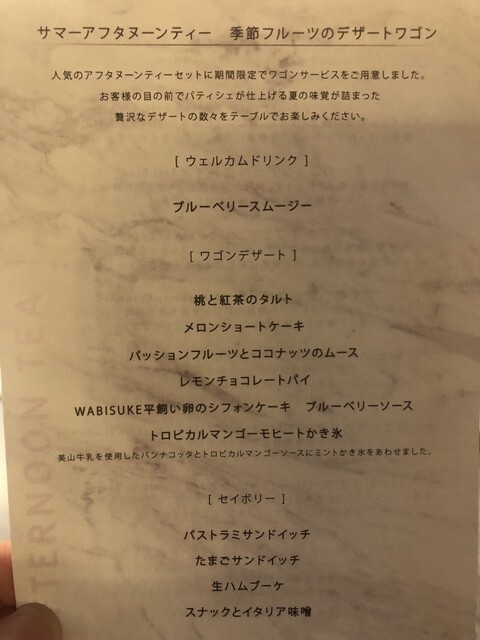 サマーアフタヌーンティー　季節フルーツのデザートワゴン
人気のアフタヌーンティーセットに期間限定でワゴンサービスをご用意しました。
お客様の目の前でパティシェが仕上げる夏の味覚が詰まった
贅沢なデザートの数々をテーブルでお楽しみください。
[ ウェルカムドリンク ]
ブルーベリースムージー
[ ワゴンデザート ]
桃と紅茶のタルト
メロンショートケーキ
パッションフルーツとココナッツのムース
レモンチョコレートパイ
WABISUKE平飼い卵のシフォンケーキ　ブルーベリーソース
トロピカルマンゴーモヒートかき氷
美山牛乳を使用したパンナコッタとトロピカルマンゴーソースにミントかき氷をあわせました。
[ セイボリー ]
パストラミサンドイッチ
たまごサンドイッチ
生ハムブーケ
スナックとイタリア味噌
TERNOON TEA